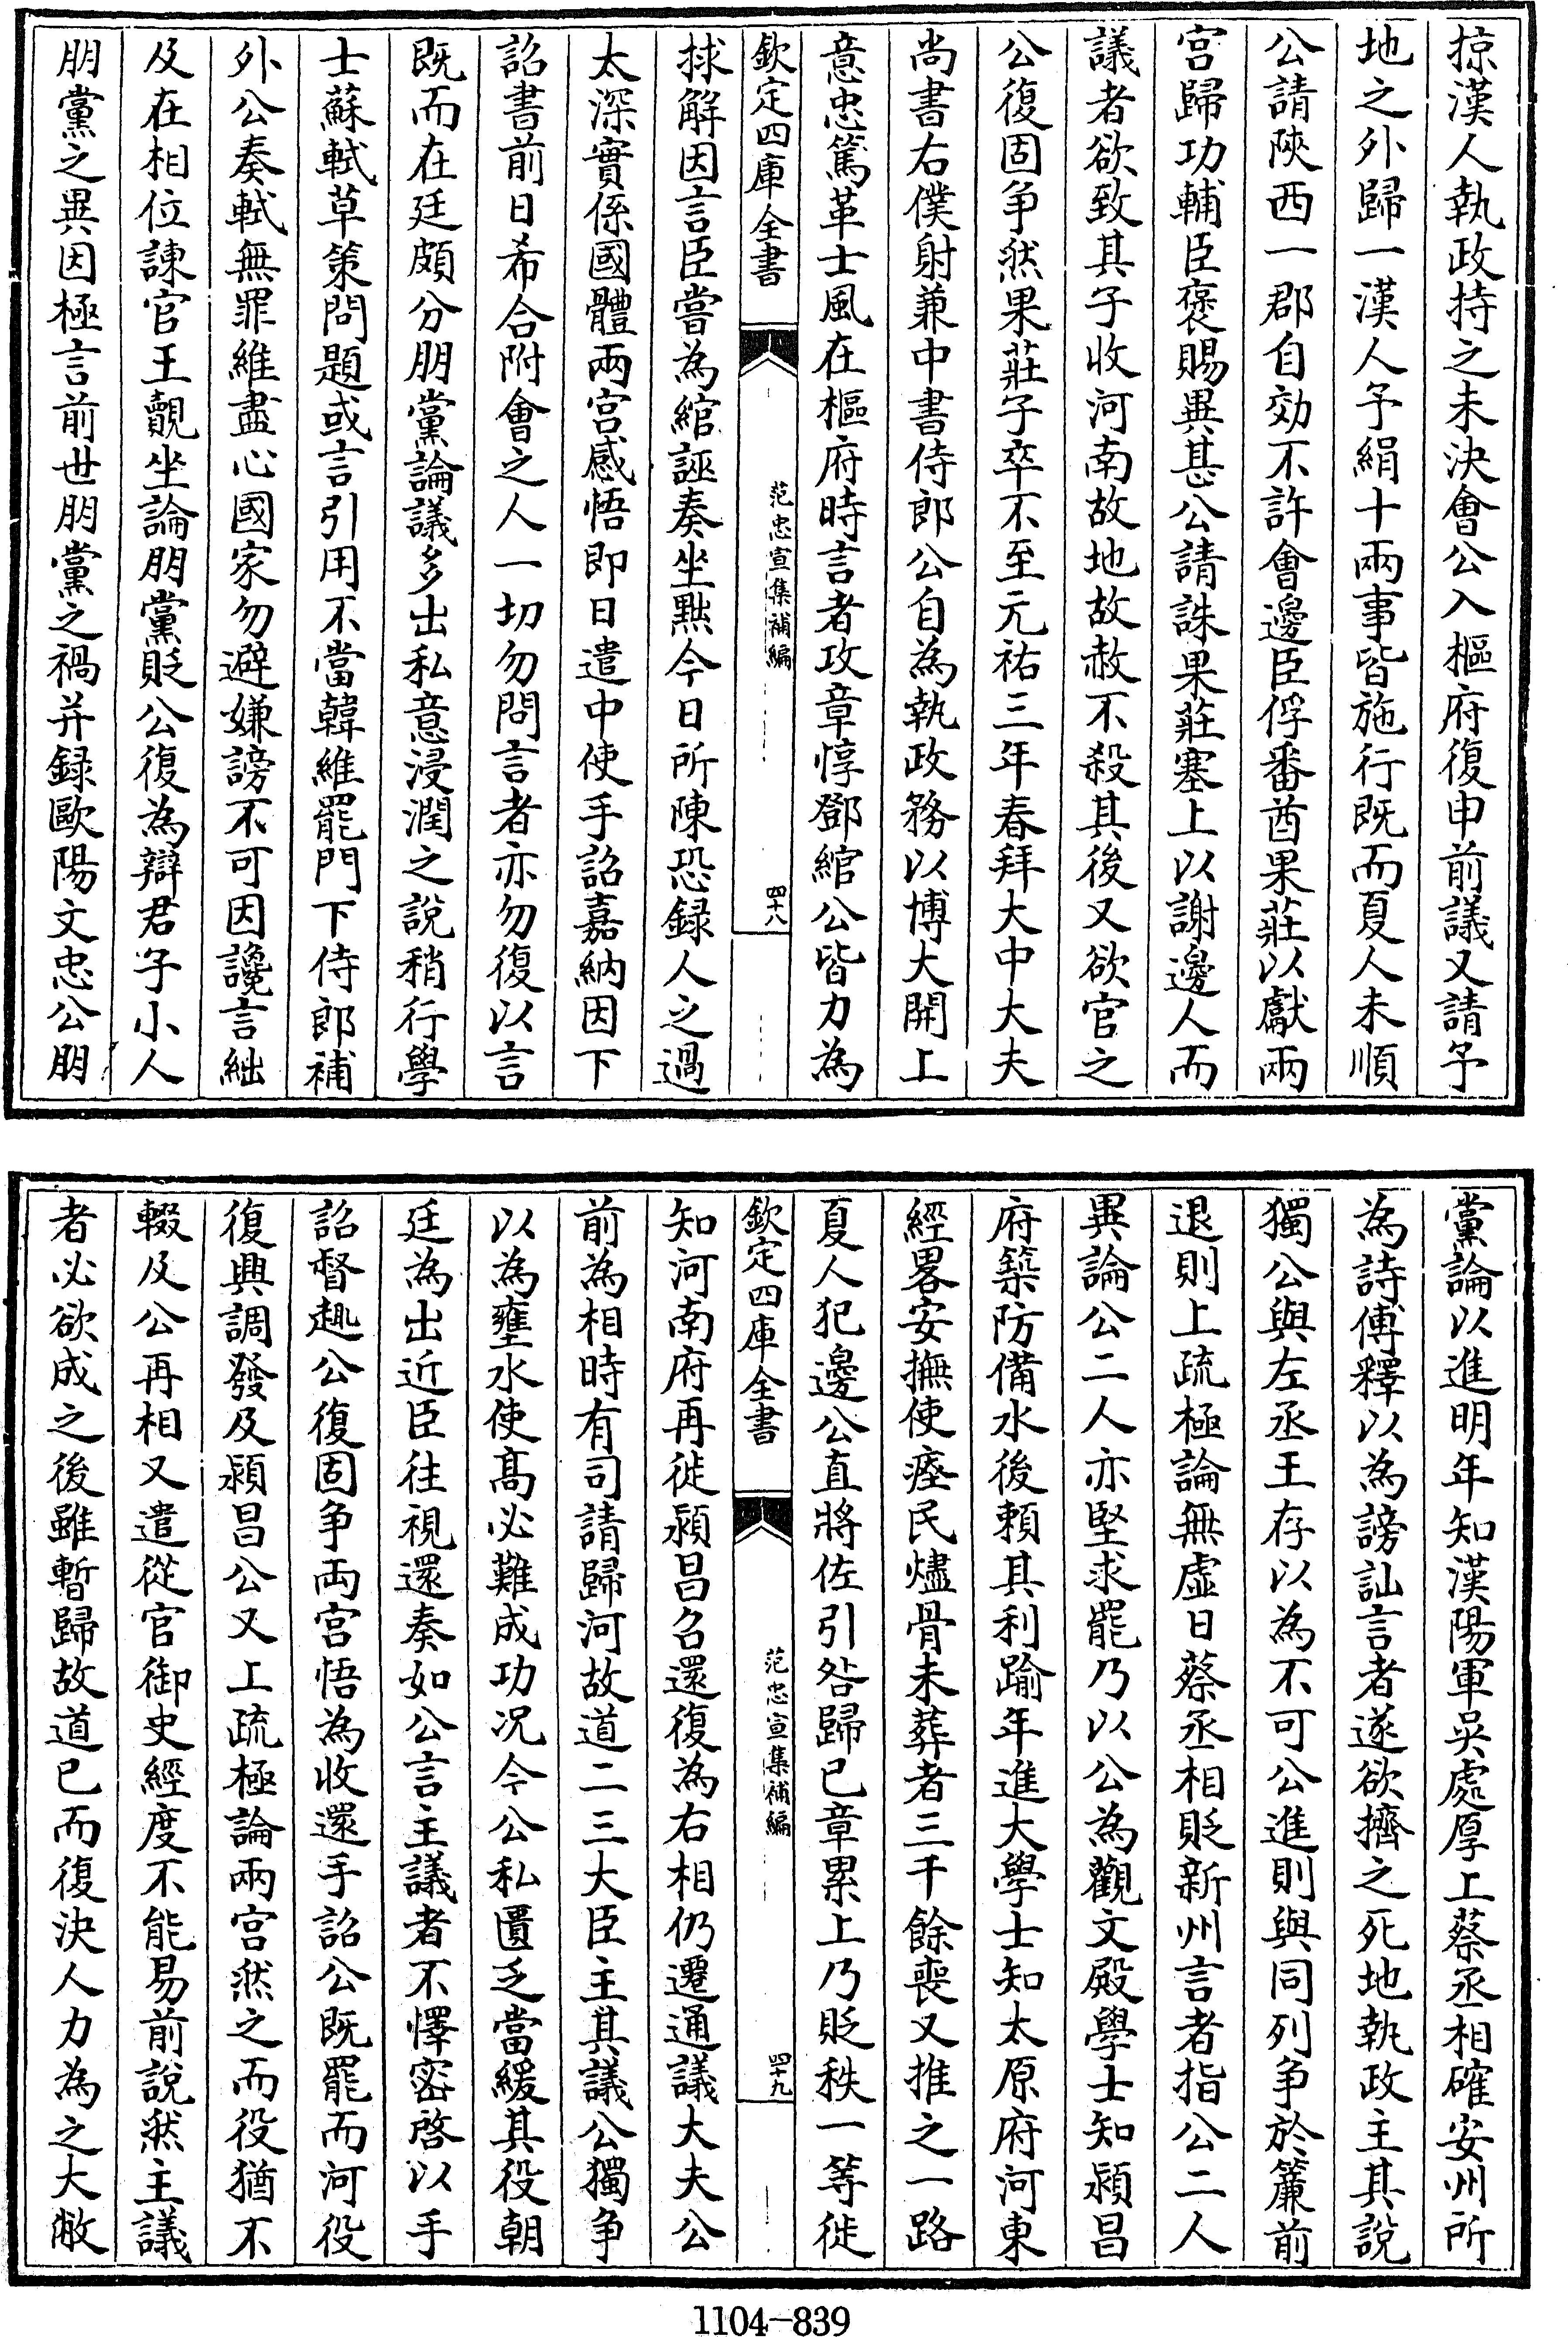 掠漢人執政持之未決會公入樞府復申前議又請予
地之外歸一漢人予絹十兩事皆施行既而夏人未順
公請陜西一郡自効不許會邊臣俘番酋果莊以獻兩
宫歸功輔臣褒賜異甚公請誅果莊塞上以謝邊人而
議者欲致其子收河南故地故赦不殺其後又欲官之
公復固争然果莊子卒不至元祐三年春拜大中大夫
尚書右僕射兼中書侍郎公自為執政務以博大開上
意忠篤革士風在樞府時言者攻章惇鄧綰公皆力為
欽定四庫全書
范忠宣集補編
四十八
捄解因言臣嘗為綰誣奏坐黜今日所陳恐録人之過
太深實係國體兩宫感悟即日遣中使手詔嘉納因下
詔書前日希合附會之人一切勿問言者亦勿復以言
既而在廷頗分朋黨論議多出私意浸潤之說稍行學
士蘇軾草策問題或言引用不當韓維罷門下侍郎補
外公奏軾無罪維盡心國家勿避嫌謗不可因讒言絀
及在相位諫官王覿坐論朋黨貶公復為辯君子小人
朋黨之異因極言前世朋黨之禍并録歐陽文忠公朋
黨論以進明年知漢陽軍吳處厚上蔡丞相確安州所
為詩傅釋以為謗訕言者遂欲擠之死地執政主其說
獨公與左丞王存以為不可公進則與同列争於簾前
退則上疏極論無虚日蔡丞相貶新州言者指公二人
異論公二人亦堅求罷乃以公為觀文殿學士知潁昌
府築防備水後賴其利踰年進大學士知太原府河東
經畧安撫使瘞民燼骨未葬者三千餘喪又推之一路
夏人犯邊公直將佐引咎歸已章累上乃貶秩一等徙
欽定四庫全書
范忠宣集補編
四十九
知河南府再徙潁昌召還復為右相仍遷通議大夫公
前為相時有司請歸河故道二三大臣主其議公獨争
以為壅水使髙必難成功况今公私匱乏當緩其役朝
廷為出近臣往視還奏如公言主議者不懌密啓以手
詔督趣公復固争兩宫悟為收還手詔公既罷而河役
復興調發及潁昌公又上疏極論兩宫然之而役猶不
輟及公再相又遣從官御史經度不能易前說然主議
者必欲成之後雖暫歸故道已而復決人力為之大敝
1104-839